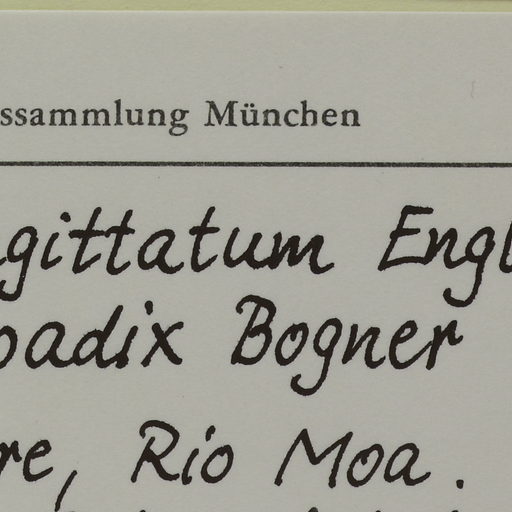 ssammlung München
gittatum Engl
padix Bogner
re, Rio Moa.